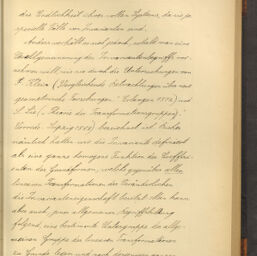 die Endlichkeit eines vollen Systems, da sie ja
specielle Fälle von Invarianten sind.
Anders verhält es sich jedoch, sobald man eine
Verallgemeinerung des Invariantenbegriffs vor-
nehmen will, wie sie durch die Untersuchungen von
F. Klein (Vergleichende Betrachtungen über neuere
geometrische Forschungen. Erlangen 1872) und
S. Lie (Theorie der Transformationsgruppen.
Leipzig 1888) bezeichnet ist. Bisher
nämlich hatten wir die Invariante definiert
als eine ganze homogene Funktion der Coeffici-
enten der Grundformen, welche gegenüber allen
linearen Transformationen der Veränderlichen
die Invarianteneigenschaft besitzt. Man kann
aber auch, jener allgemeinen Begriffsbildung
folgend, eine bestimmte Untergruppe der allge-
meinen Gruppe der linearen Transformationen
zu Grunde legen und nach